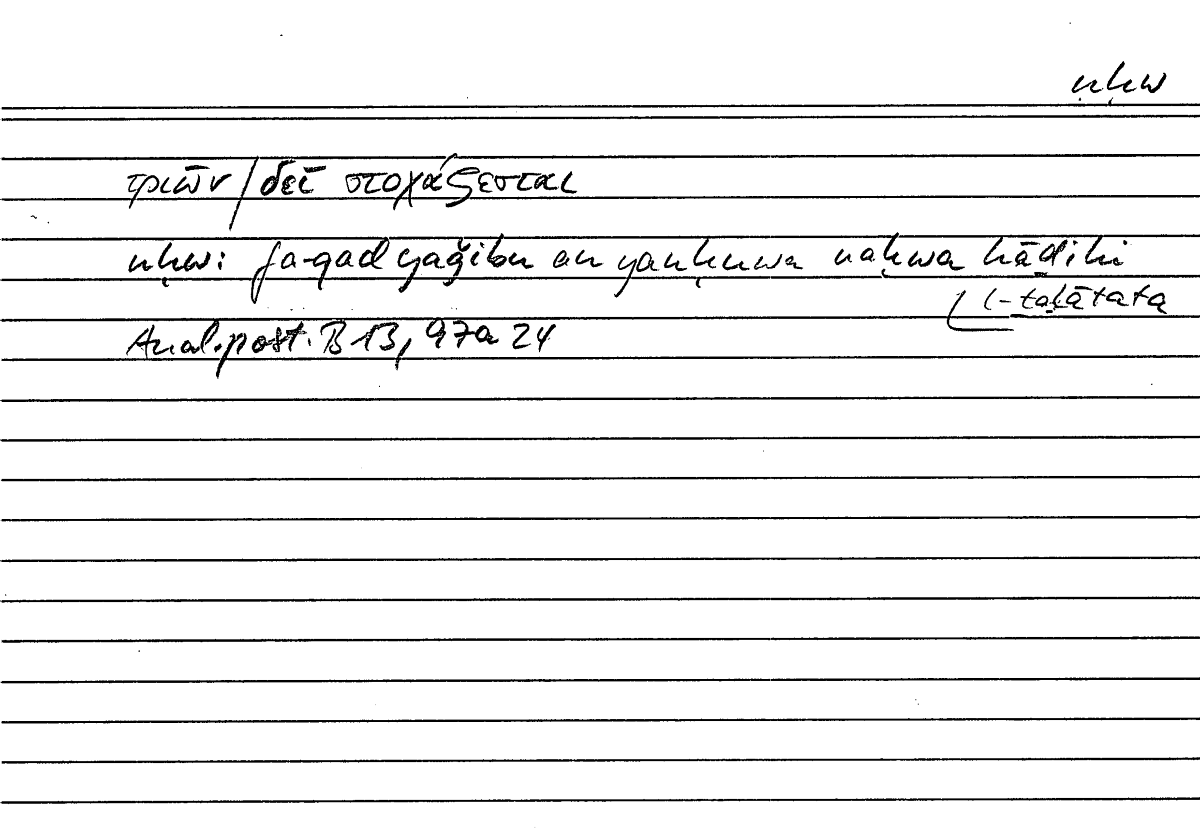 nḥw
τριῶν / δεῖ στοχάζεσται
nḥw: fa-qad yaǧibu an yanḥuwa naḥwa hāḏihi
l-ṯalāṯata
Anal. post. B 13, 97a 24